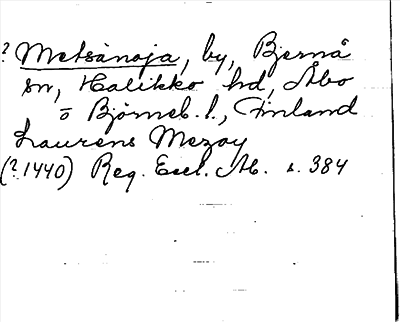 ? Metsänoja, by, Bjernå
sn, Halikko hd, Åbo
o Björneb. l., Finland
Laurens Mezoy
(? 1440) Reg. Eccl. Ab. s. 384